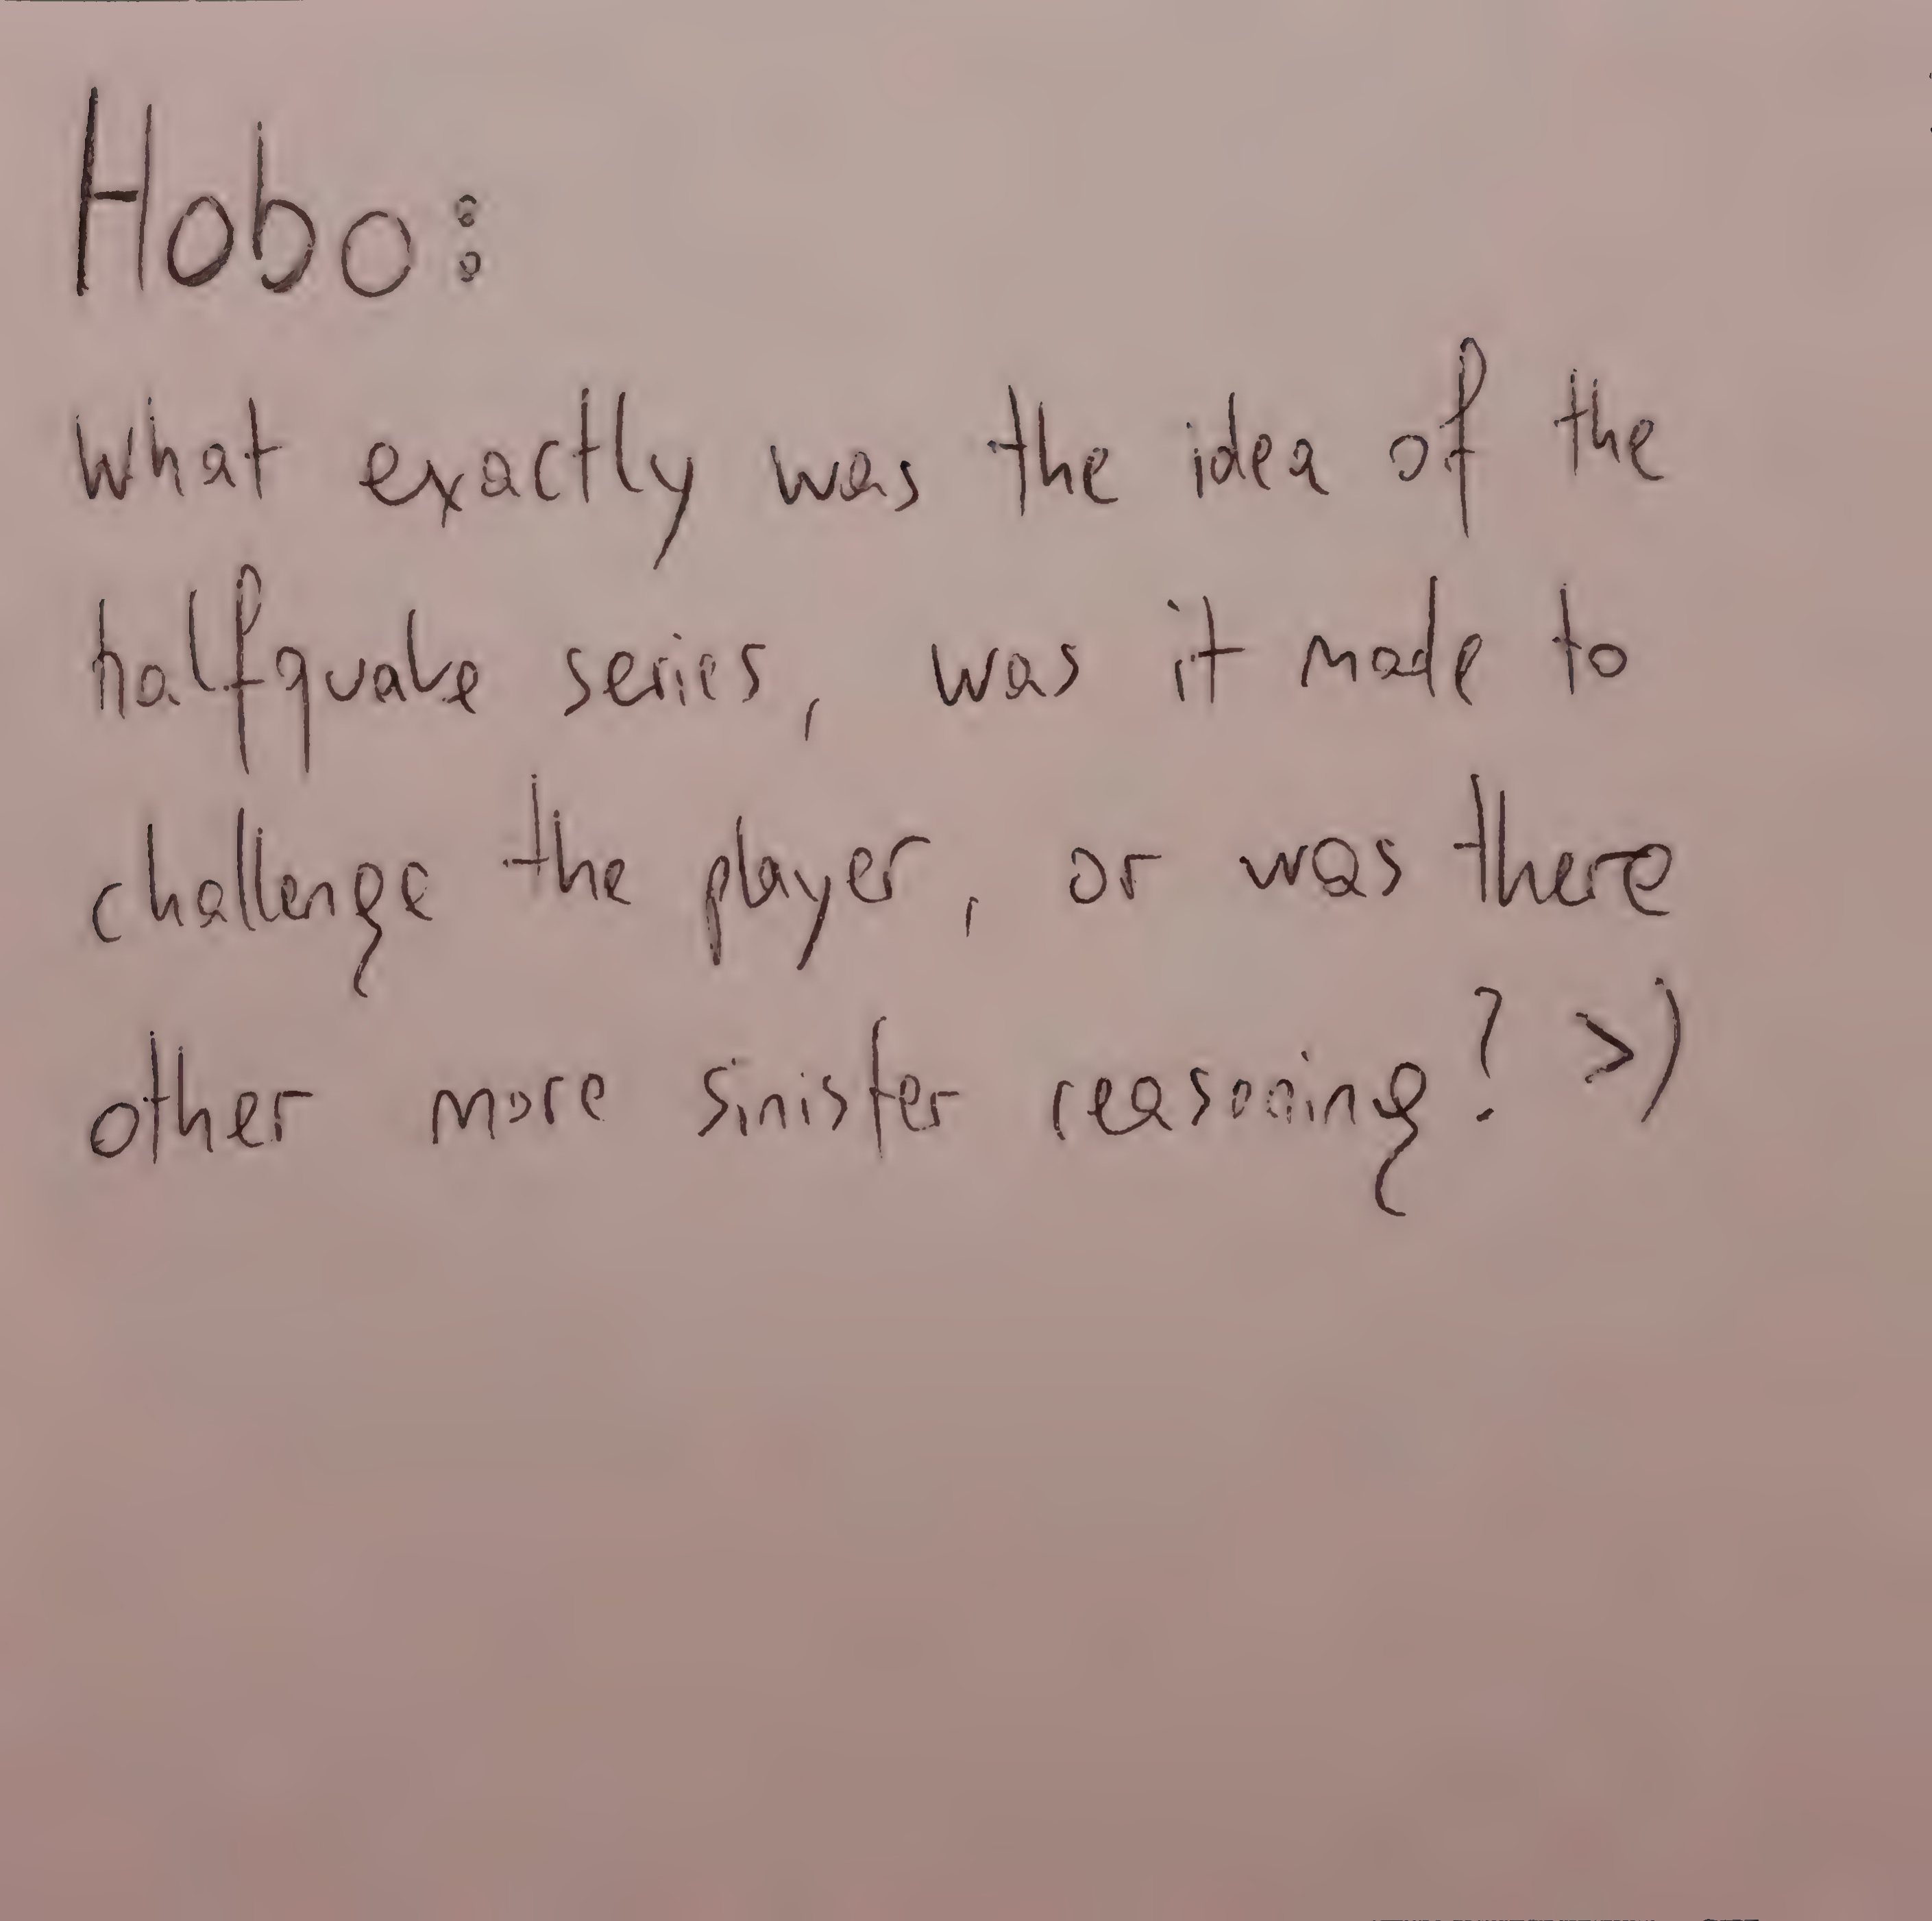 Hobo:
What exactly was the idea of the
halfquake series, was it made to
challenge the player, or was there
other more sinister reasoning? >)